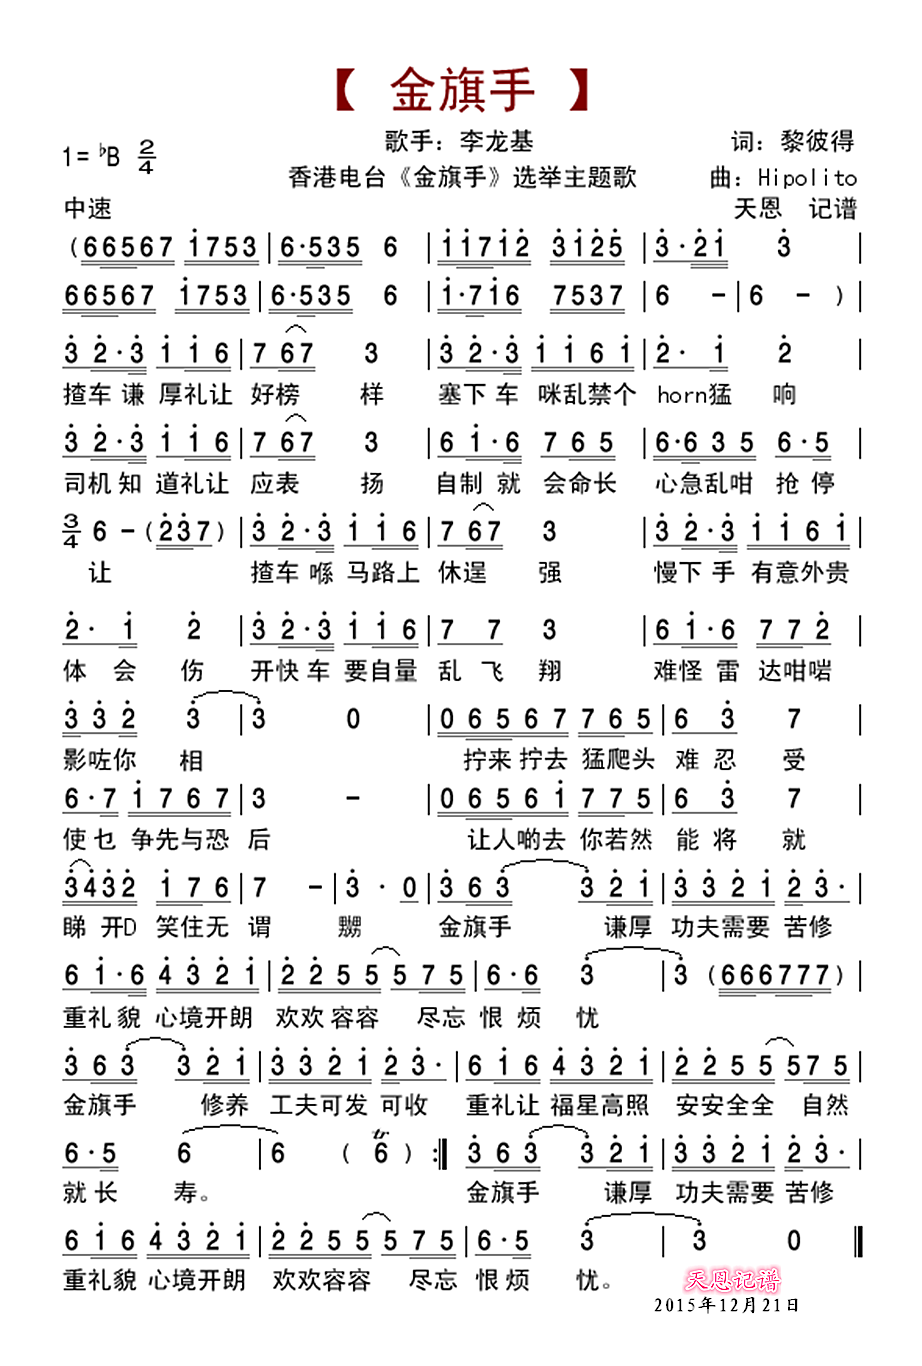 【 金旗手 】
歌手：李龙基 词：黎彼得
1=♭B 2/4
香港电台《金旗手》选举主题歌 曲：Hipolito
中速 天恩 记谱
(66567 i753|6·535 6 |ii7i2 3i25|3·2i 3 |
66567 i753|6·535 6 |i·7i6 7537|6 －|6 －)
3 2·3 i i 6|7 67 3 |3 2·3 i i 6 i|2· i 2 |
揸车谦 厚礼让 好榜 样 塞下车 咪乱禁个 horn猛 响
3 2·3 i i 6|7 67 3 |6 i·6 7 6 5|6·6 3 5 6·5|
司机知 道礼让 应表 扬 自制就 会命长 心急乱咁 抢停
3/4 6 －(237)|3 2·3 i i 6|7 67 3 |3 2·3 i i 6 i|
让 揸车喺 马路上 休逞 强 慢下手 有意外贵
2· i 2 |3 2·3 i i 6|7 7 3 |6 i·6 7 7 2|
体会 伤 开快车 要自量 乱飞 翔 难怪雷 达咁啱
3 3 2 3|3 0 |0 6 5 6 7 7 6 5|6 3 7 |
影咗你 相 拧来拧去 猛爬头 难忍 受
6·7 i 7 6 7|3 － |0 6 5 6 i 7 7 5|6 3 7 |
使乜 争先与恐 后 让人啲去 你若然 能将 就
3432 i 7 6|7 －|3 · 0|3 6 3 3 2 i|3 3 2 i 2 3·|
睇开D 笑住无 谓 嬲 金旗手 谦厚 功夫需要 苦修
6 i·6 4 3 2 i|2 2 5 5 5 7 5|6·6 3 |3 (666777)|
重礼貌 心境开朗 欢欢容容 尽忘 恨烦 忧
3 6 3 3 2 i|3 3 2 i 2 3·|6 i 6 4 3 2 i|2 2 5 5 5 7 5|
金旗手 修养 工夫可发 可收 重礼让 福星高照 安安全全 自然
6·5 6 |6 ( tr 6 ) :‖3 6 3 3 2 i|3 3 2 i 2 3·|
就长 寿。 金旗手 谦厚 功夫需要 苦修
6 i 6 4 3 2 i|2 2 5 5 5 7 5|6·5 3 |3 0 ‖
重礼貌 心境开朗 欢欢容容 尽忘 恨烦 忧。
天恩记谱
2015年12月21日